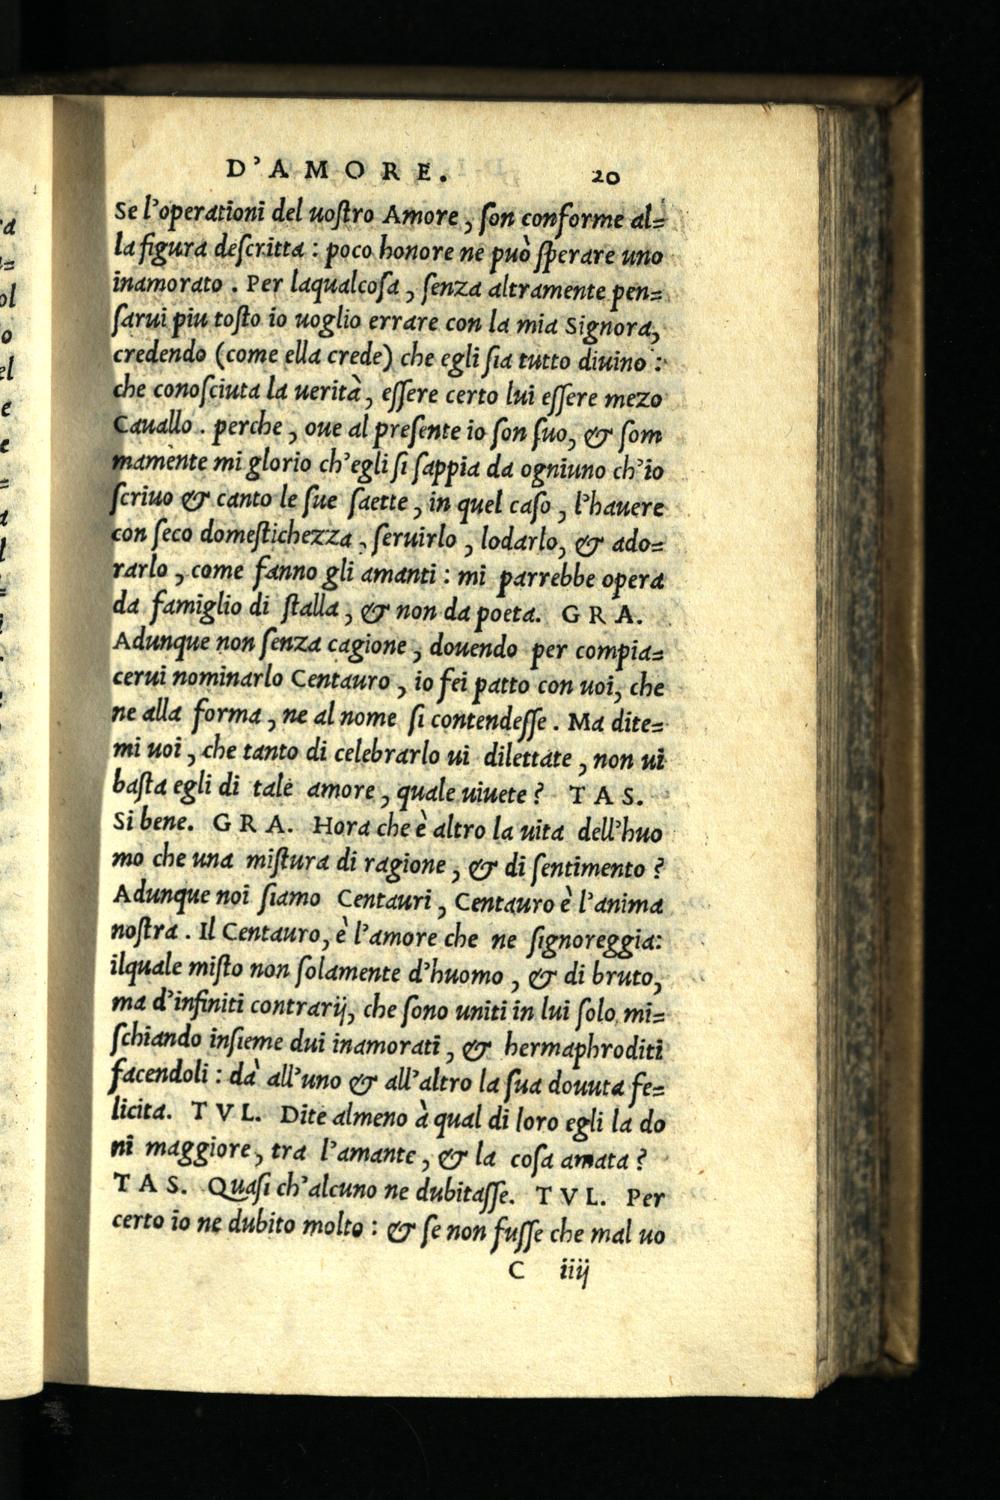 D'AMORE. 20
Se l'operationi del uoſtro Amore, ſon conforme al=
la figura deſcritta : poco honore ne può ſperare uno
inamorato . Per laqualcoſa , ſenza altramente pen=
ſarui piu toſto io uoglio errare con la mia Signora,
credendo (come ella crede) che egli ſia tutto diuino :
che conoſciuta la uerità, eſſere certo lui eſſere mezo
Cauallo . perche , oue al preſente io ſon ſuo, & ſom
mamente mi glorio ch'egli ſi ſappia da ogniuno ch'io
ſcriuo & canto le ſue ſaette , in quel caſo , l'hauere
con ſeco domeſtichezza , ſeruirlo , lodarlo, & ado=
rarlo , come fanno gli amanti : mi parrebbe opera
da famiglio di ſtalla , & non da poeta. GRA.
Adunque non ſenza cagione , douendo per compia=
cerui nominarlo Centauro , io fei patto con uoi, che
ne alla forma , ne al nome ſi contendeſſe . Ma dite=
mi uoi , che tanto di celebrarlo ui dilettate , non ui
baſta egli di tale amore , quale uiuete ? TAS.
Si bene. GRA. Hora che è altro la uita dell'huo
mo che una miſtura di ragione , & di ſentimento ?
Adunque noi ſiamo Centauri , Centauro è l'anima
noſtra . Il Centauro, è l'amore che ne ſignoreggia:
ilquale miſto non ſolamente d'huomo , & di bruto,
ma d'infiniti contrarij, che ſono uniti in lui ſolo, mi=
ſchiando inſieme dui inamorati , & hermaphroditi
facendoli : dà all'uno & all'altro la ſua douuta fe=
licita. TVL. Dite almeno à qual di loro egli la do
ni maggiore, tra l'amante , & la coſa amata ?
TAS. Quaſi ch'alcuno ne dubitaſſe. TVL. Per
certo io ne dubito molto : & ſe non fuſſe che mal uo
C iiij